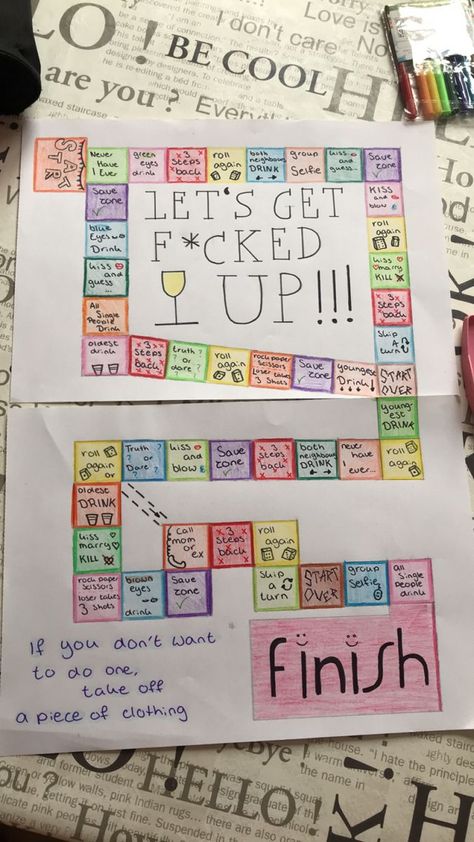 Love is
I don't care.
HELLO!
BE COOL
are you?
Everything
START
Never Have I Ever
green eyes drink
3 steps back
roll again
both neighbours DRINK
group selfie
kiss and guess...
save zone
save zone
LET'S GET
F*CKED
UP!!!
KISS and blow
blue Eyes Drink
roll again
kiss and guess...
kiss marry KILL
All Single People Drink
3 steps back
Skip A turn
oldest drink
3 steps back
truth? or dare?
roll again
rock paper Scissors Loser takes 3 Shots
Save zone
youngest Drink
START OVER
youngest DRINK
roll again or
Truth? or Dare?
kiss and blow
Save zone
3 steps back
both neighbours DRINK
never have I ever...
roll again
oldest DRINK
Call mom or ex
3 steps back
roll again
kiss marry KILL
Skip a turn
START OVER
group Selfie
all Single People drink
rock paper Scissors loser takes 3 shots
brown eyes drink
Save zone
If you don't want
to do one,
take off
a piece of clothing
finish
HELLO!